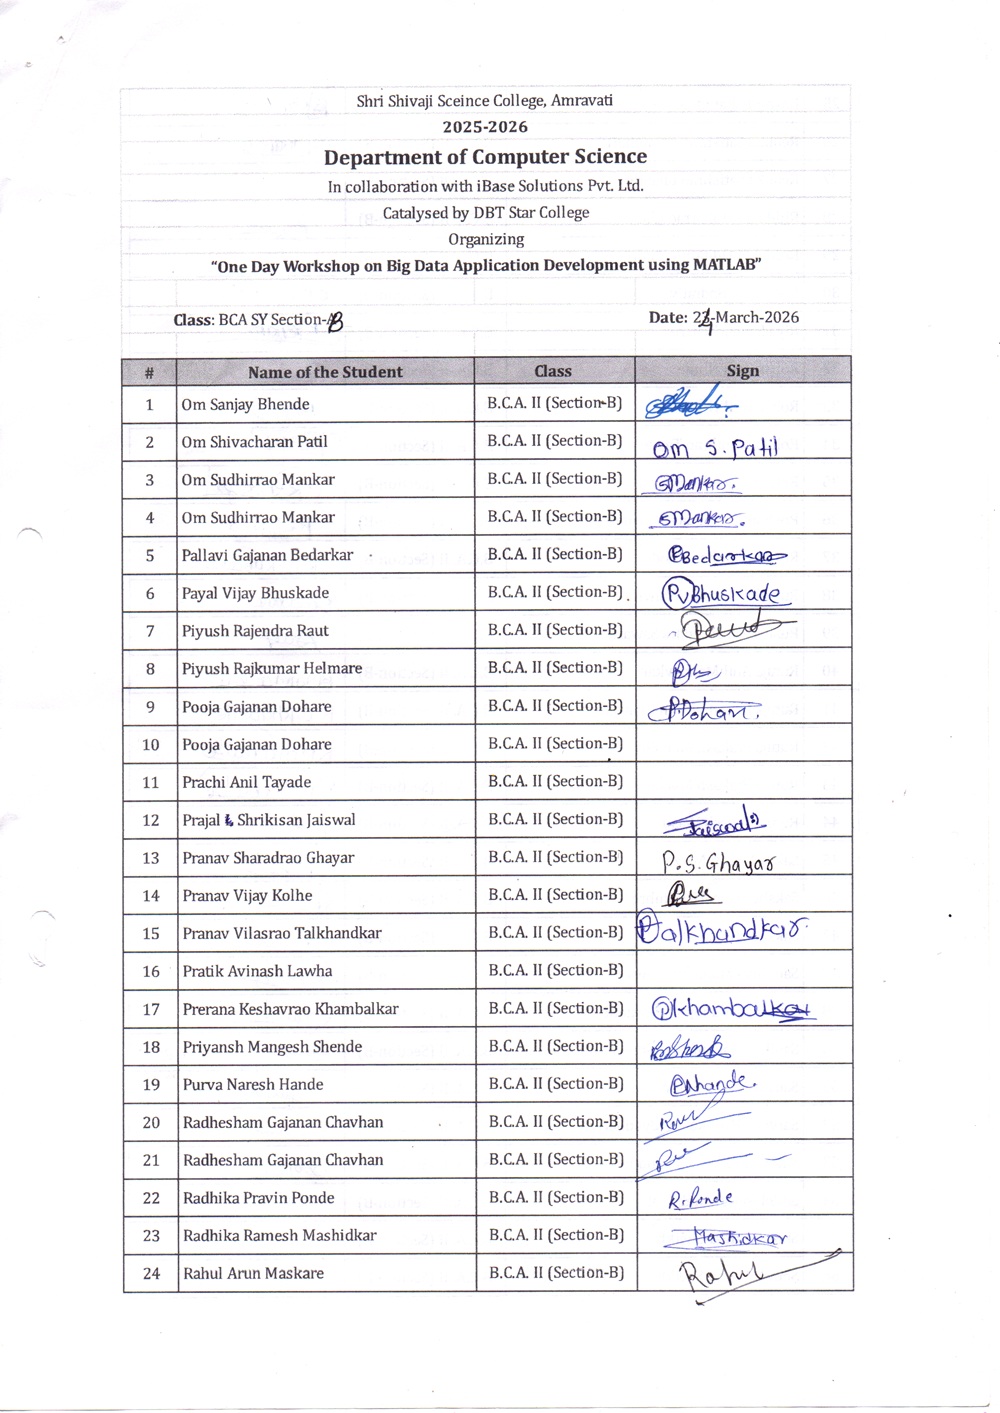 Shri Shivaji Sceince College, Amravati
2025-2026
Department of Computer Science
In collaboration with iBase Solutions Pvt. Ltd.
Catalysed by DBT Star College
Organizing
“One Day Workshop on Big Data Application Development using MATLAB”
Class: BCA SY Section-B Date: 24-March-2026
# Name of the Student Class Sign
1 Om Sanjay Bhende B.C.A. II (Section-B)
2 Om Shivacharan Patil B.C.A. II (Section-B) Om S. Patil
3 Om Sudhirrao Mankar B.C.A. II (Section-B) SMankar.
4 Om Sudhirrao Mankar B.C.A. II (Section-B) SMankar.
5 Pallavi Gajanan Bedarkar B.C.A. II (Section-B) PBedarkar
6 Payal Vijay Bhuskade B.C.A. II (Section-B) PVBhuskade
7 Piyush Rajendra Raut B.C.A. II (Section-B)
8 Piyush Rajkumar Helmare B.C.A. II (Section-B)
9 Pooja Gajanan Dohare B.C.A. II (Section-B)
10 Pooja Gajanan Dohare B.C.A. II (Section-B)
11 Prachi Anil Tayade B.C.A. II (Section-B)
12 Prajal Shrikisan Jaiswal B.C.A. II (Section-B) Jaiswal
13 Pranav Sharadrao Ghayar B.C.A. II (Section-B) P.S. Ghayar
14 Pranav Vijay Kolhe B.C.A. II (Section-B)
15 Pranav Vilasrao Talkhandkar B.C.A. II (Section-B) Talkhandkar
16 Pratik Avinash Lawha B.C.A. II (Section-B)
17 Prerana Keshavrao Khambalkar B.C.A. II (Section-B) Pkhambalkar
18 Priyansh Mangesh Shende B.C.A. II (Section-B)
19 Purva Naresh Hande B.C.A. II (Section-B) PNhande.
20 Radhesham Gajanan Chavhan B.C.A. II (Section-B)
21 Radhesham Gajanan Chavhan B.C.A. II (Section-B)
22 Radhika Pravin Ponde B.C.A. II (Section-B) R.Ponde
23 Radhika Ramesh Mashidkar B.C.A. II (Section-B) Mashidkar
24 Rahul Arun Maskare B.C.A. II (Section-B) Rahul